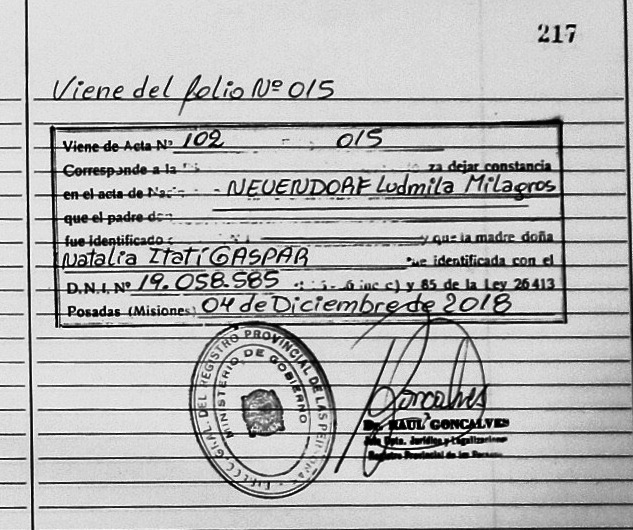 217
Viene del folio Nº 015
Viene de Acta Nº 102 015
Corresponde a la za dejar constancia
en el acta de NEUENDORF Ludmila Milagros
que el padre don
fue identificado y que la madre doña
Natalia Itatí GASPAR fue identificada con el
D.N.I. Nº 19.058.585 inc c) y 85 de la Ley 26413
Posadas (Misiones) 04 de Diciembre de 2018
GRAL. DEL REGISTRO PROVINCIAL DE LAS PERSONAS
MINISTERIO DE GOBIERNO
Goncalves
Dr. RAUL GONCALVES
Jefe Dpto. Jurídico y Legalizaciones
Registro Provincial de las Personas